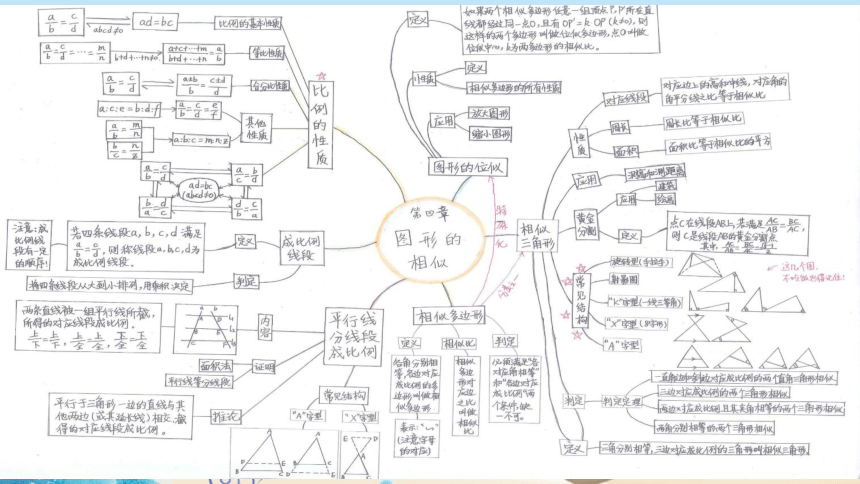 第四章
图形的
相似
比例的性质
a/b = c/d
abcd≠0
ad=bc
比例的基本性质
a/b = c/d = … = m/n
b+d+…+n≠0
a+c+…+m/b+d+…+n = a/b
等比性质
a/b = c/d
a±b/b = c±d/d
合分比性质
a:c:e=b:d:f
a/b = c/d = e/f
其他性质
a/b = m/n
b/c = n/z
a:b:c=m:n:z
a/b = c/d
a/c = b/d
ad=bc
(abcd≠0)
b/a = d/c
d/b = c/a
成比例线段
定义
若四条线段a,b,c,d满足
a/b = c/d,则称线段a,b,c,d为
成比例线段。
注意:成
比例线
段有一定
的顺序!
判定
将四条线段从大到小排列,用乘积决定
平行线
分线段
成比例
内容
两条直线被一组平行线所截,
所得的对应线段成比例。
上/下=上/下,上/全=上/全,下/全=下/全
证明
面积法
平行线等分线段
推论
平行于三角形一边的直线与其
他两边(或其延长线)相交,截
得的对应线段成比例。
常见结构
"A"字型
"X"字型
相似多边形
定义
各角分别相
等,各边对应
成比例的多
边形叫做相
似多边形
表示:"∽"
(注意字母
的对应)
相似比
相似
多边
形对
应边
之比
叫做
相似
比
判定
必须满足"各
对应角相等"
和"各边对应
成比例"两
个条件,缺
一不可。
特殊化
图形的位似
定义
如果两个相似多边形任意一组顶点P,P'所在直
线都经过同一点O,且有OP'=k·OP(k≠0),则
这样的两个多边形叫做位似多边形,点O叫做
位似中心,k为两多边形的相似比。
性质
定义
相似多边形的所有性质
应用
放大图形
缩小图形
相似三角形
性质
对应线段
对应边上的高和中线,对应角的
角平分线之比等于相似比
周长
周长比等于相似比
面积
面积比等于相似比的平方
应用
黄金分割
应用
建筑
绘画
定义
点C在线段AB上,若满足AC/AB=BC/AC,
则C是线段AB的黄金分割点
常见结构
旋转型(手拉手)
射影图
"K"字型(一线三等角)
"X"字型(8字形)
"A"字型
这几个图,
判定
判定定理
一直角边和斜边对应成比例的两个直角三角形相似
三边对应成比例的两个三角形相似
两边对应成比例且其夹角相等的两个三角形相似
两角分别相等的两个三角形相似
定义
三角分别相等,三边对应成比例的三角形叫相似三角形